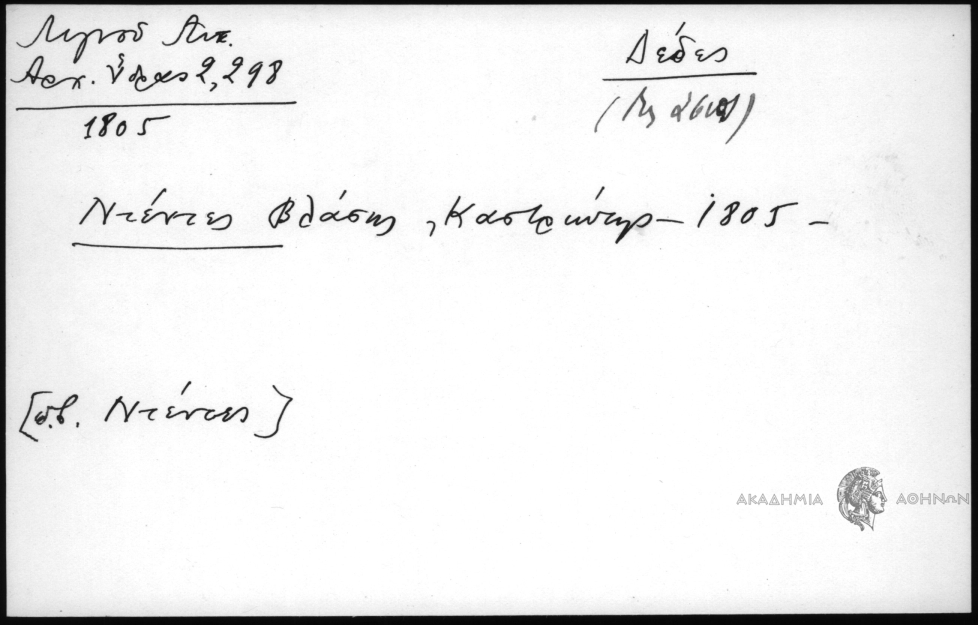 Λιγνού Αντ.
Αρχ. Ύδρας 2, 298
1805
Δέδες
Ντέντες Βλάσης, Καστριώτης – 1805 –
[π.β. Ντέντες]
ΑΚΑΔΗΜΙΑ ΑΘΗΝΩΝ